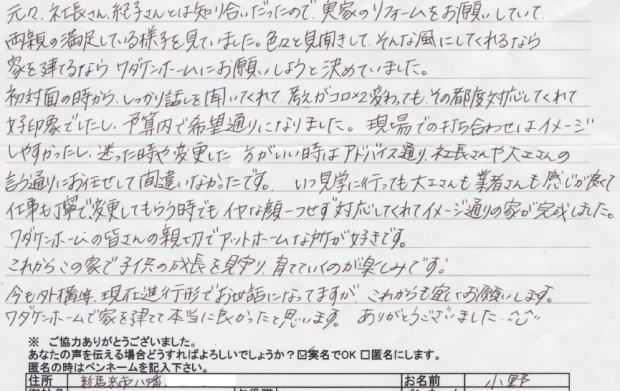 元々、社長さん、紀子さんとは知り合いだったので、実家のリフォームをお願いしていて、
両親の満足している様子を見ていました。色々と見聞きして、そんな風にしてくれるなら
家を建てるなら ワダケンホームにお願いしようと決めていました。
初対面の時から、しっかり話しを聞いてくれて、考えがコロコロ変わっても、その都度対応してくれて
好印象でしたし、予算内で希望通りになりました。 現場での打ち合わせはイメージ
しやすかったし、迷った時や変更した方がいい時はアドバイス通り、社長さんや大工さんの
言う通りにお任せして間違いなかったです。 いつ見学に行っても大工さんも業者さんも感じが良くて
仕事も丁寧で、変更してもらう時でもイヤな顔一つせず対応してくれてイメージ通りの家が完成しました。
ワダケンホームの皆さんの親切でアットホームな所が好きです。
これからこの家で子供の成長を見守り、育てていくのが楽しみです。
今も外構等、現在進行形でお世話になってますが、これからも宜しくお願いします。
ワダケンホームで家を建てて本当に良かったと思います。 ありがとうございました
※ ご協力ありがとうございました。
あなたの声を伝える場合どうすればよろしいでしょうか？☑実名でOK □匿名にします。
匿名の時はペンネームを記入下さい。
住所 新居浜市八幡 お名前 小野